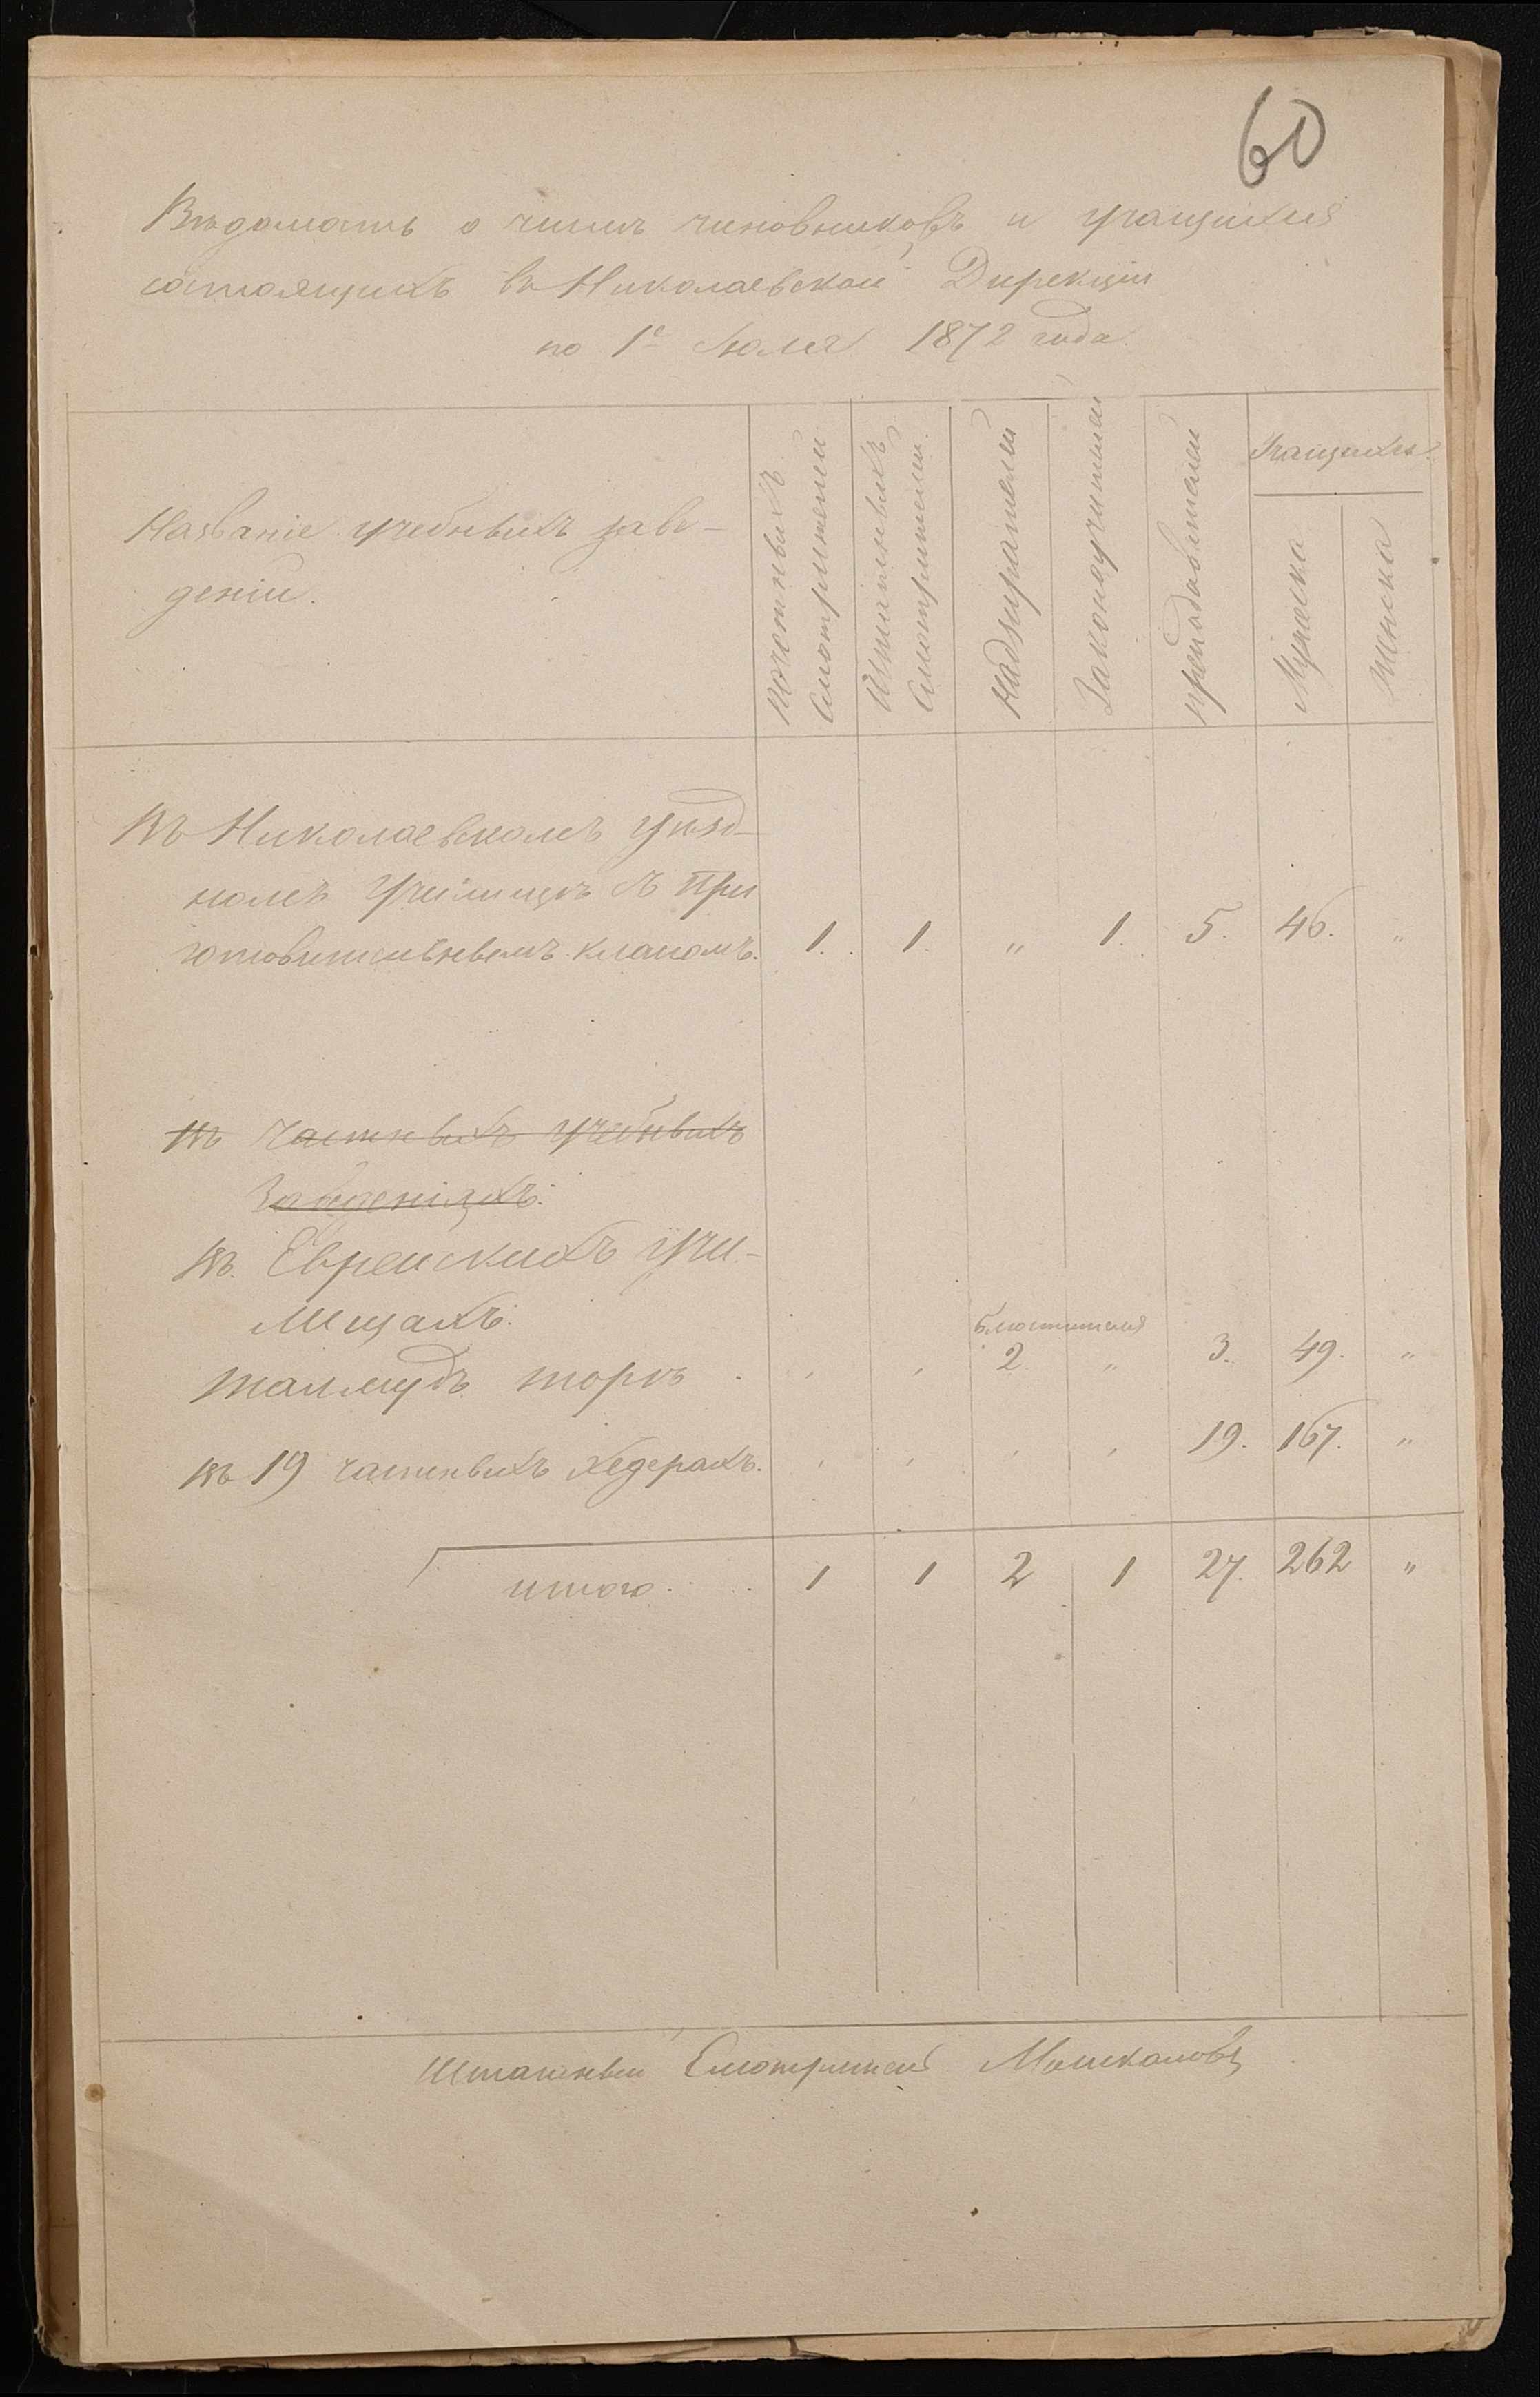 60
Вѣдомость о числѣ чиновниковъ и учащихся
состоящихъ въ Николаевской Дирекціи
по 1е Июля 1872 года.
Названіе учебныхъ заве-
деній.
Почетныхъ
смотрителей
Штатныхъ
смотрителей.
Надзирателей
Законоучителей
преподавателей
Учащихся.
Мужеска
Женска
Въ Николаевскомъ уѣзд-
номъ Училищѣ съ при
готовительнымъ класомъ. 1. 1. " 1. 5. 46. "
Въ частныхъ учебныхъ
Заведеніяхъ:
Въ Еврейскихъ Учи-
лищахъ:
Блюстителя
Талмудъ торѣ 2. " 3. 49. "
Въ 19 частныхъ хедерахъ. 19. 167. "
итого. 1 1 2 1 27. 262 "
Штатный Смотритель